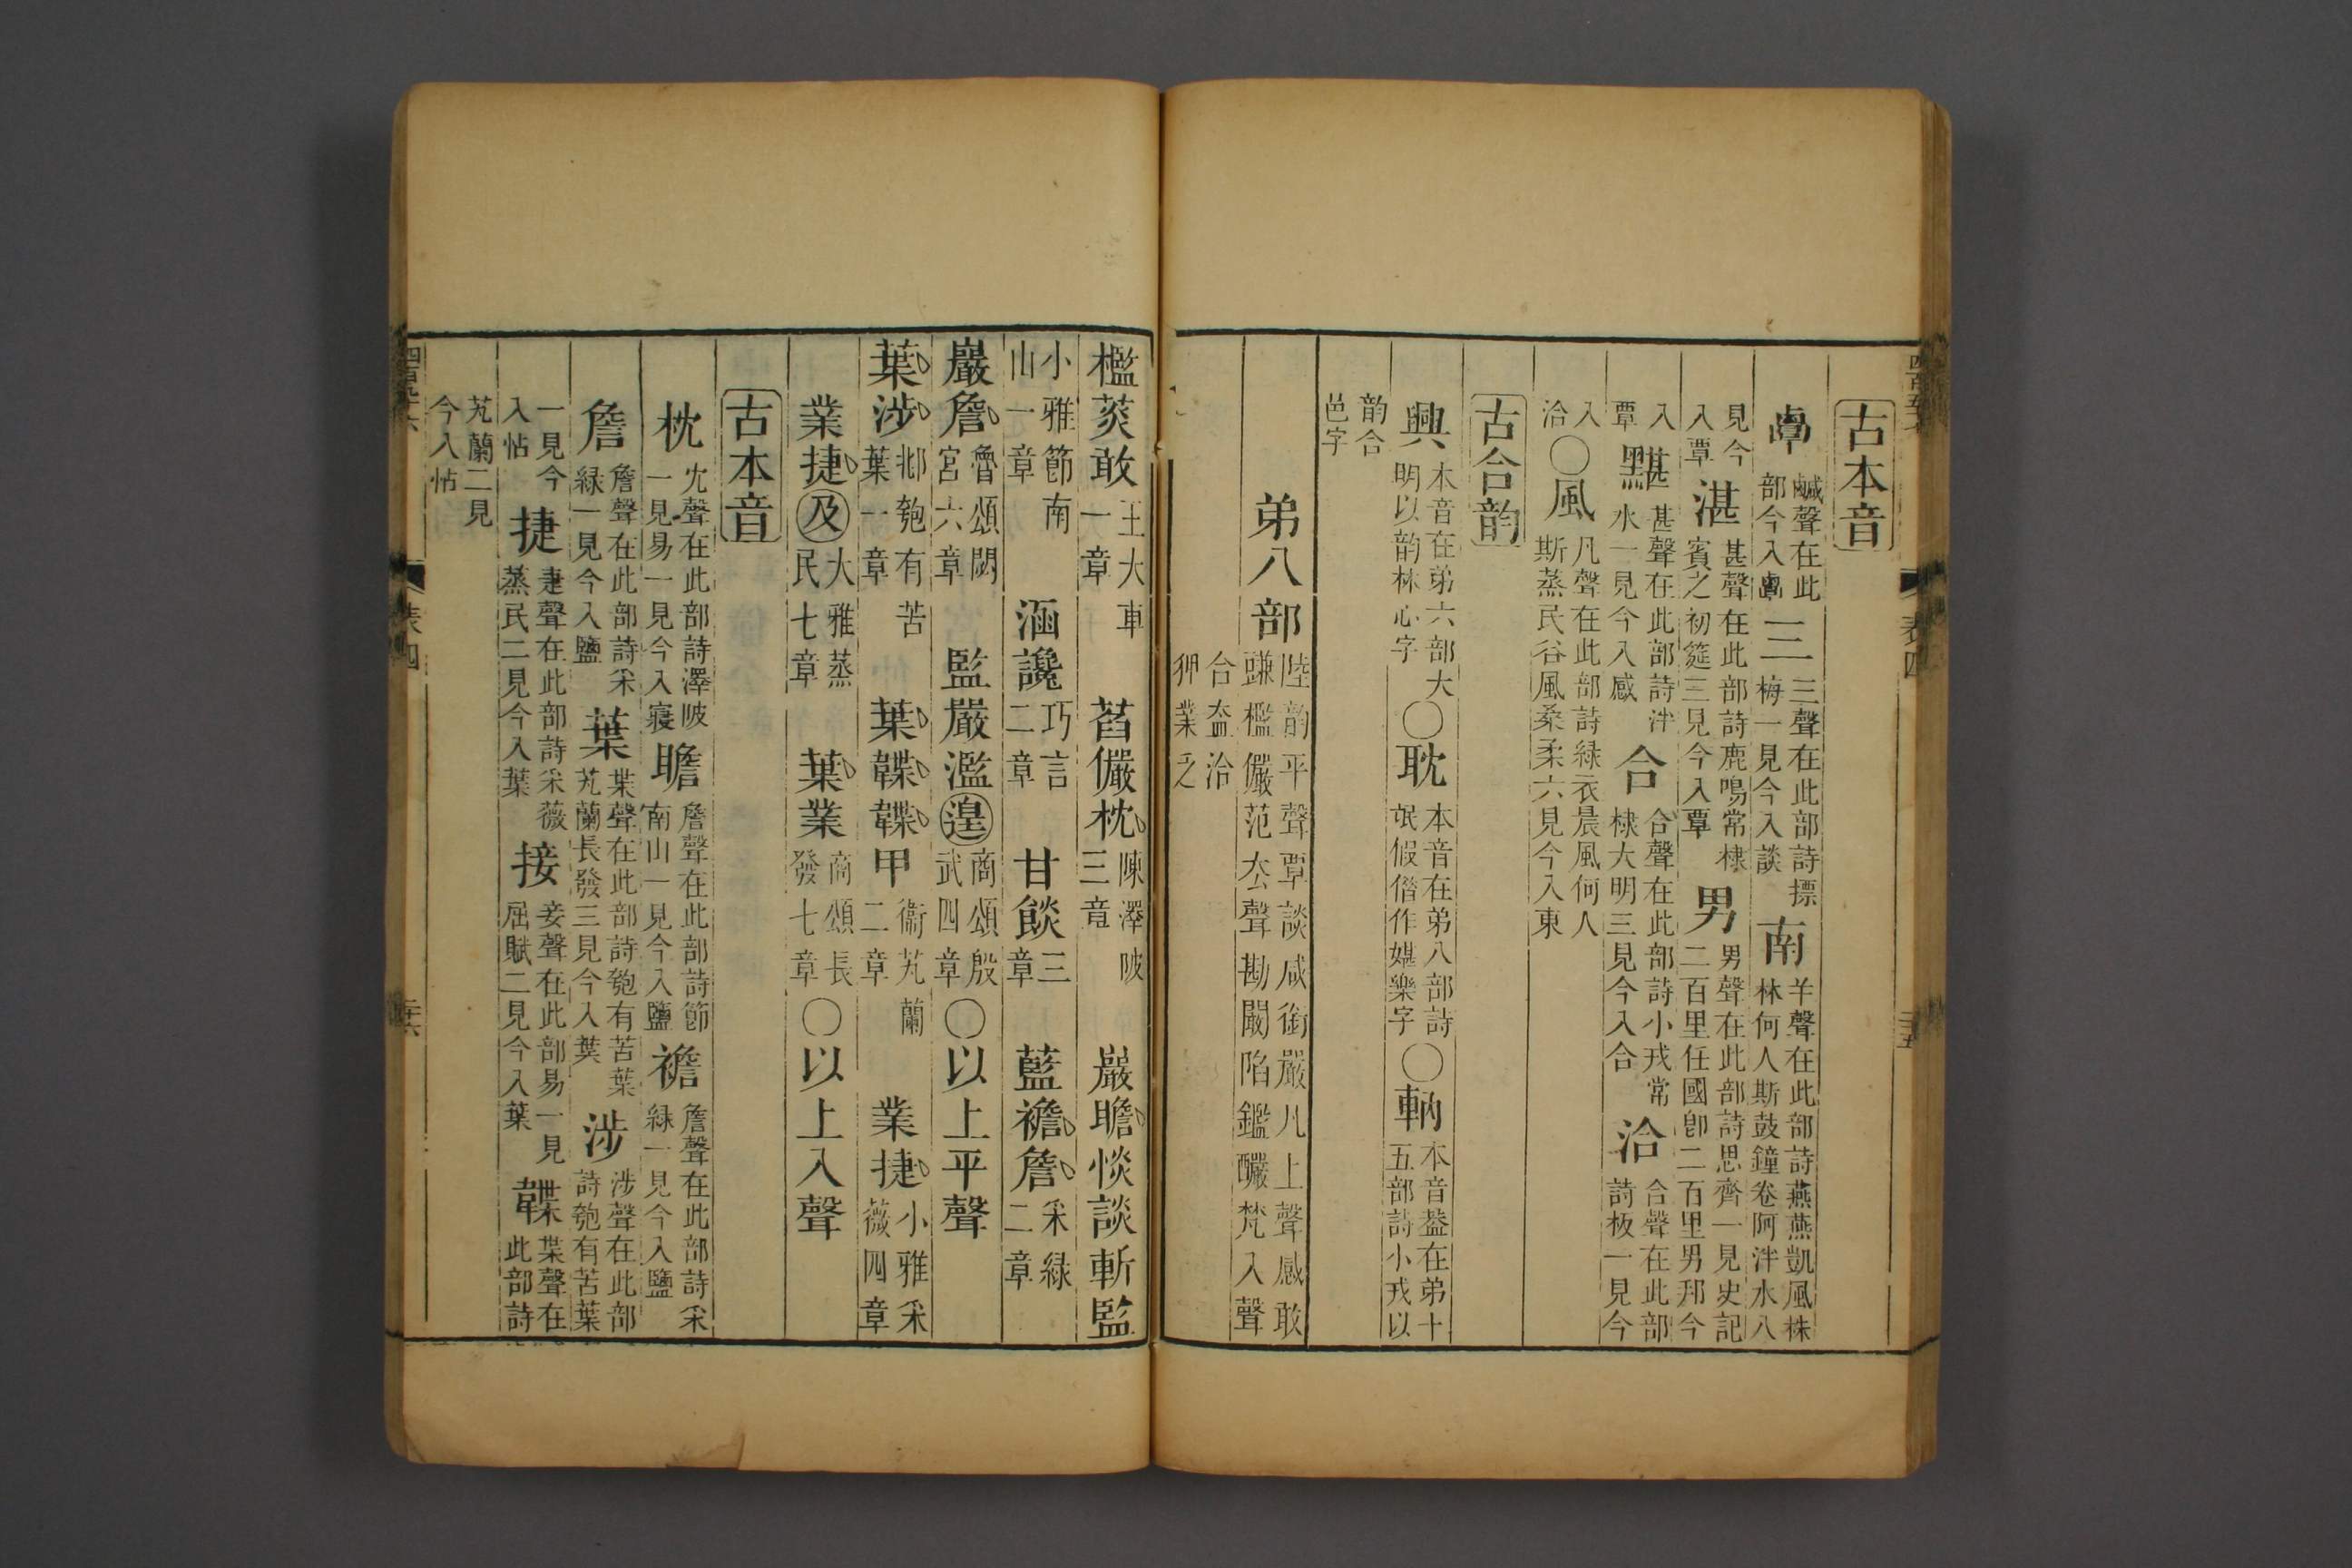 古本音
鹹聲在此部今入 三 三聲在此部詩摽梅一見今入談 南 羊聲在此部詩燕燕凱風株林何人斯鼓鐘卷阿泮水八
見今入覃 湛 甚聲在此部詩鹿鳴常棣賓之初筵三見今入覃 男 男聲在此部詩思齊一見史記二百里任國卽二百里男邦今
入覃 黮 甚聲在此部詩泮水一見今入感 合 合聲在此部詩小戎常棣大明三見今入合 洽 合聲在此部詩板一見今
入洽 〇風 凡聲在此部詩緑衣晨風何人斯蒸民谷風桑柔六見今入東
古合韵
興 本音在弟六部大明以韵林心字 〇耽 本音在弟八部詩氓假借作媅樂字 〇軜 本音葢在弟十五部詩小戎以
韵合邑字
弟八部 陸韵平聲覃談咸銜嚴凡上聲感敢豏檻儼范厺聲勘闞陷鑑釅梵入聲
合盍洽狎業乏
檻菼敢 王大車一章 萏儼枕 陳澤陂三章 巖瞻惔談斬監
小雅節南山一章 涵讒 巧言二章 甘餤 三章 藍襜詹 采緑二章
巖詹 魯頌閟宮六章 監嚴濫遑 商頌殷武四章 〇以上平聲
葉涉 邶匏有苦葉一章 葉韘韘甲 衞芄蘭二章 業捷 小雅采薇四章
業捷及 大雅蒸民七章 葉業 商頌長發七章 〇以上入聲
古本音
枕 冘聲在此部詩澤陂一見易一見今入寑 瞻 詹聲在此部詩節南山一見今入鹽 襜 詹聲在此部詩采緑一見今入鹽
詹 詹聲在此部詩采緑一見今入鹽 葉 枼聲在此部詩匏有苦葉芄蘭長發三見今入葉 涉 涉聲在此部詩匏有苦葉
一見今入帖 捷 疌聲在此部詩采薇蒸民二見今入葉 接 妾聲在此部易一見屈賦二見今入葉 韘 枼聲在此部詩
芄蘭二見今入帖
表四
表四